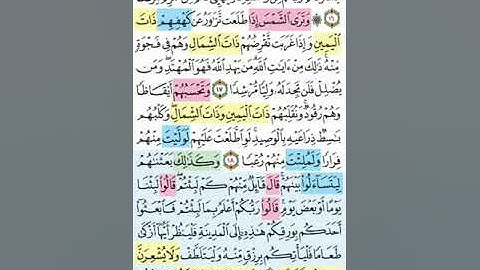 ۞ وَتَرَى ٱلشَّمْسَ إِذَا طَلَعَت تَّزَٰوَرُ عَن كَهْفِهِمْ ذَاتَ
ٱلْيَمِينِ وَإِذَا غَرَبَت تَّقْرِضُهُمْ ذَاتَ ٱلشِّمَالِ وَهُمْ فِى فَجْوَةٍ
مِّنْهُ ۚ ذَٰلِكَ مِنْ ءَايَٰتِ ٱللَّهِ ۗ مَن يَهْدِ ٱللَّهُ فَهُوَ ٱلْمُهْتَدِ ۖ وَمَن
يُضْلِلْ فَلَن تَجِدَ لَهُۥ وَلِيًّا مُّرْشِدًا ١٧ وَتَحْسَبُهُمْ أَيْقَاظًا
وَهُمْ رُقُودٌ ۚ وَنُقَلِّبُهُمْ ذَاتَ ٱلْيَمِينِ وَذَاتَ ٱلشِّمَالِ ۖ وَكَلْبُهُم
بَٰسِطٌ ذِرَاعَيْهِ بِٱلْوَصِيدِ ۚ لَوِ ٱطَّلَعْتَ عَلَيْهِمْ لَوَلَّيْتَ مِنْهُمْ
فِرَارًا وَلَمُلِئْتَ مِنْهُمْ رُعْبًا ١٨ وَكَذَٰلِكَ بَعَثْنَٰهُمْ
لِيَتَسَآءَلُوا۟ بَيْنَهُمْ ۚ قَالَ قَآئِلٌ مِّنْهُمْ كَمْ لَبِثْتُمْ ۖ قَالُوا۟ لَبِثْنَا
يَوْمًا أَوْ بَعْضَ يَوْمٍ ۚ قَالُوا۟ رَبُّكُمْ أَعْلَمُ بِمَا لَبِثْتُمْ فَٱبْعَثُوٓا۟
أَحَدَكُم بِوَرِقِكُمْ هَٰذِهِۦٓ إِلَى ٱلْمَدِينَةِ فَلْيَنظُرْ أَيُّهَآ أَزْكَىٰ
طَعَامًا فَلْيَأْتِكُم بِرِزْقٍ مِّنْهُ وَلْيَتَلَطَّفْ وَلَا يُشْعِرَنَّ